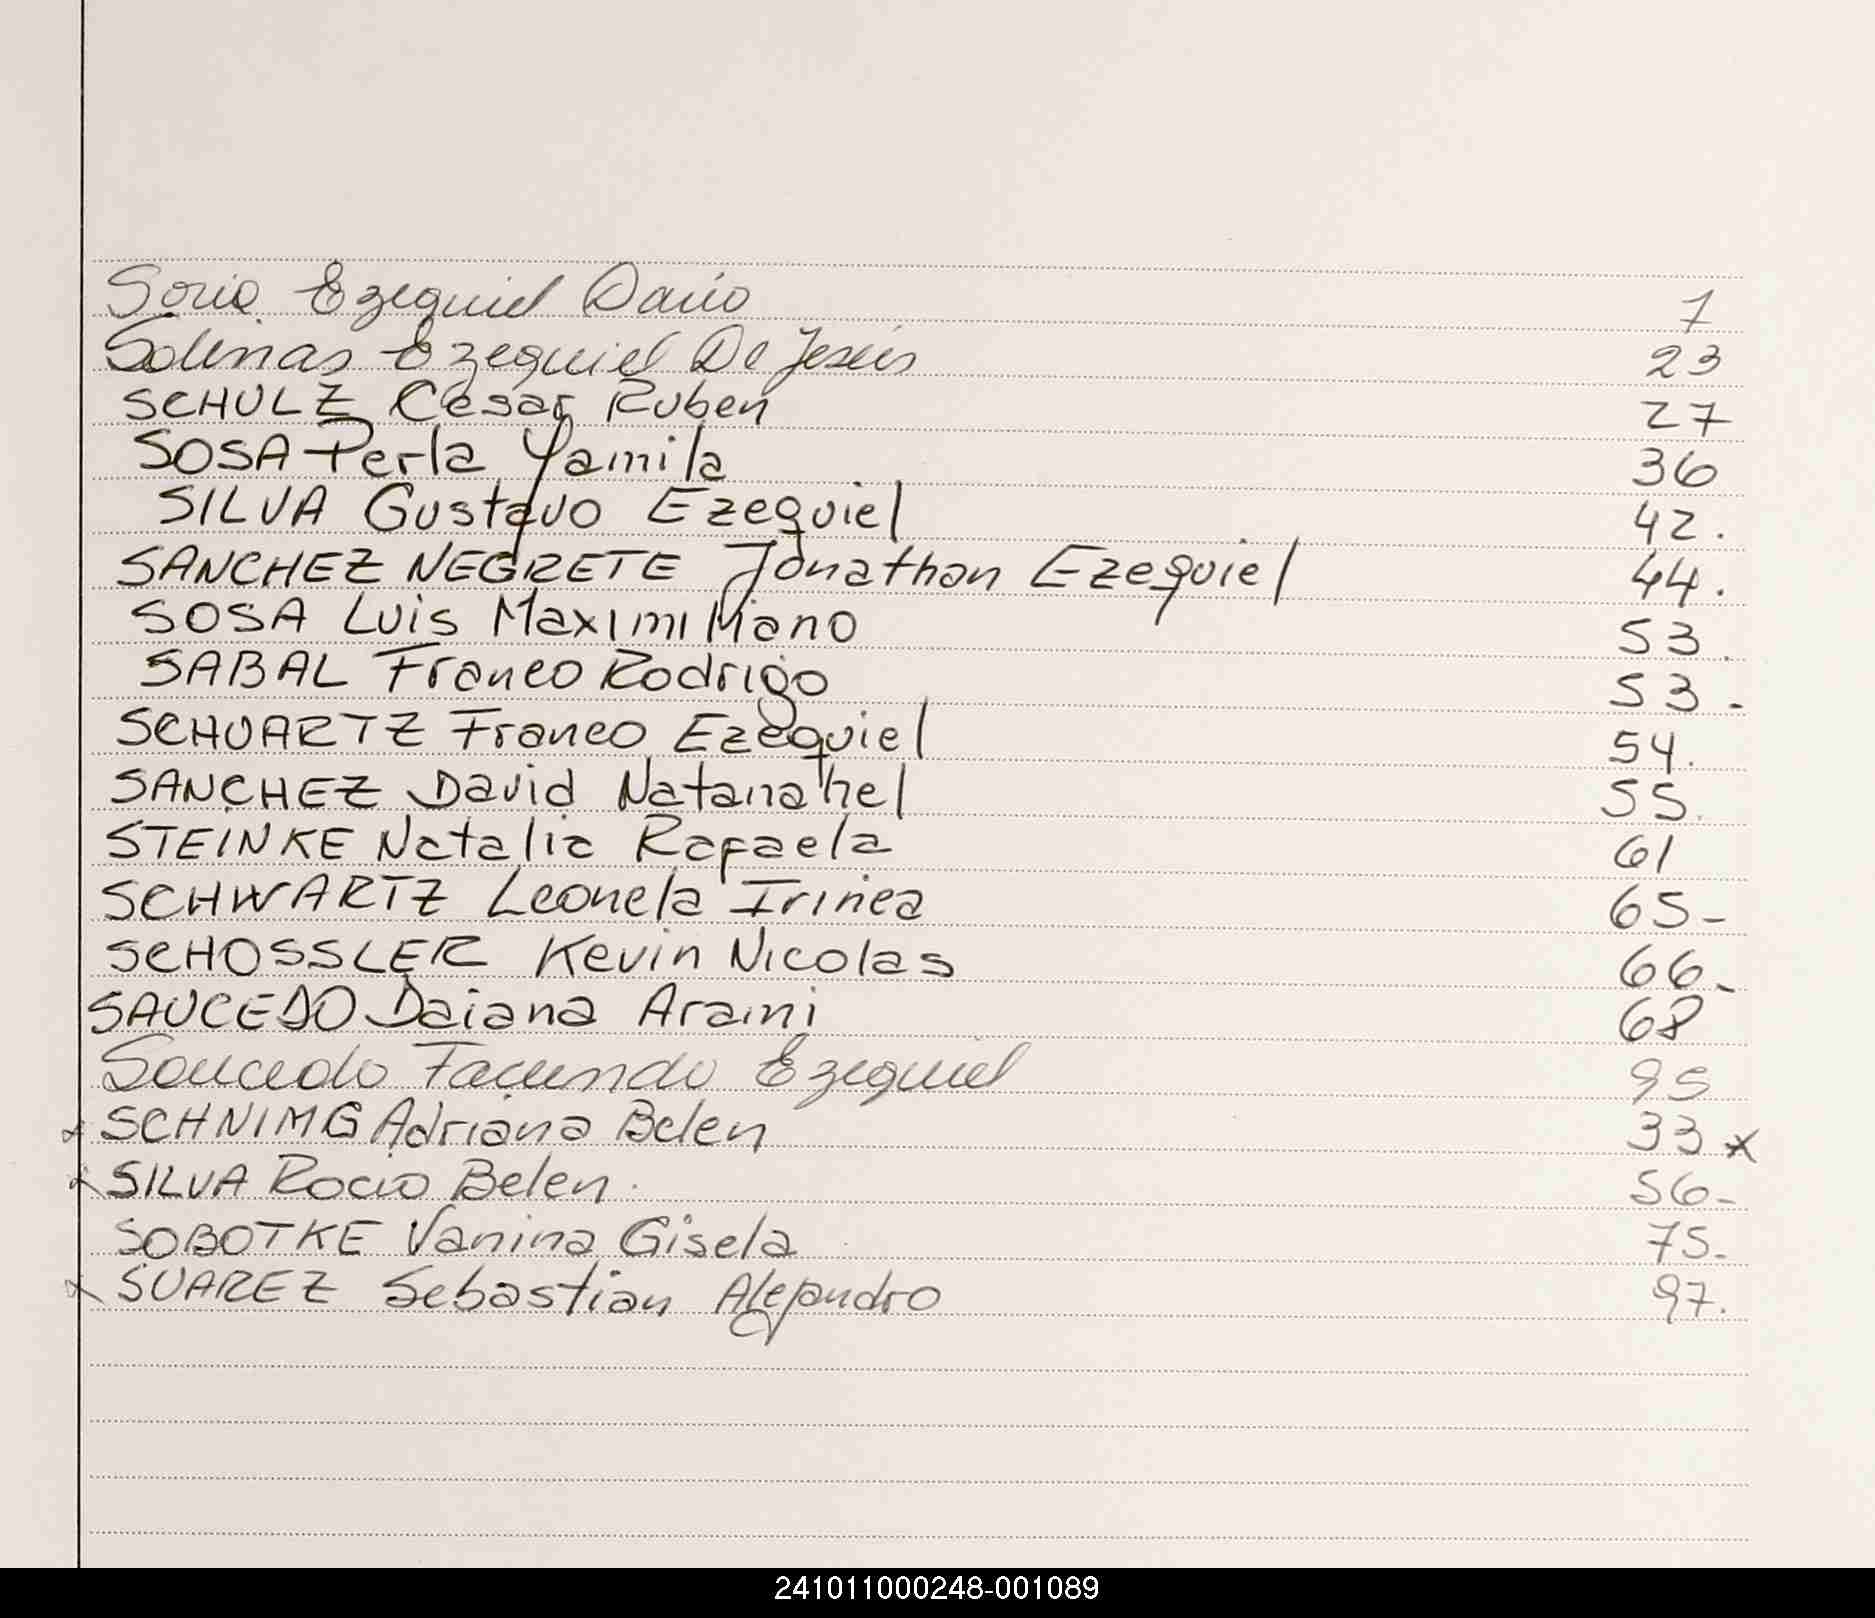 Soria Ezequiel Dario 7
Solinas Ezequiel De Jesús 23
SCHULZ Cesar Ruben 27
SOSA Perla Yamila 36
SILVA Gustavo Ezequiel 42.
SANCHEZ NEGRETE Jonathan Ezequiel 44.
SOSA Luis Maximiliano 53.
SABAL Franco Rodrigo 53-
SCHUARTZ Franco Ezequiel 54.
SANCHEZ David Natanahel 55.
STEINKE Natalia Rafaela 61
SCHWARTZ Leonela Irinea 65-
SCHOSSLER Kevin Nicolas 66-
SAUCEDO Daiana Arami 68
Saucedo Facundo Ezequiel 95
x SCHNIMG Adriana Belen 33 x
x SILVA Rocio Belen. 56-
SOBOTKE Vanina Gisela 75-
x SUAREZ Sebastian Alejandro 97.
241011000248-001089